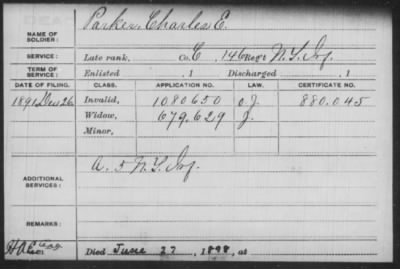 NAME OF SOLDIER: Parker, Charles E.
SERVICE: Late rank, Co. C, 146 Reg't N.Y. Inf.
TERM OF SERVICE: Enlisted , 1 Discharged , 1
DATE OF FILING. CLASS. APPLICATION NO. LAW. CERTIFICATE NO.
1891 Dec 26 Invalid, 1080650 880.045
Widow, 679.629
Minor,
ADDITIONAL SERVICES: A. 5 N.Y. Inf.
REMARKS:
Died June 27, 1898, at